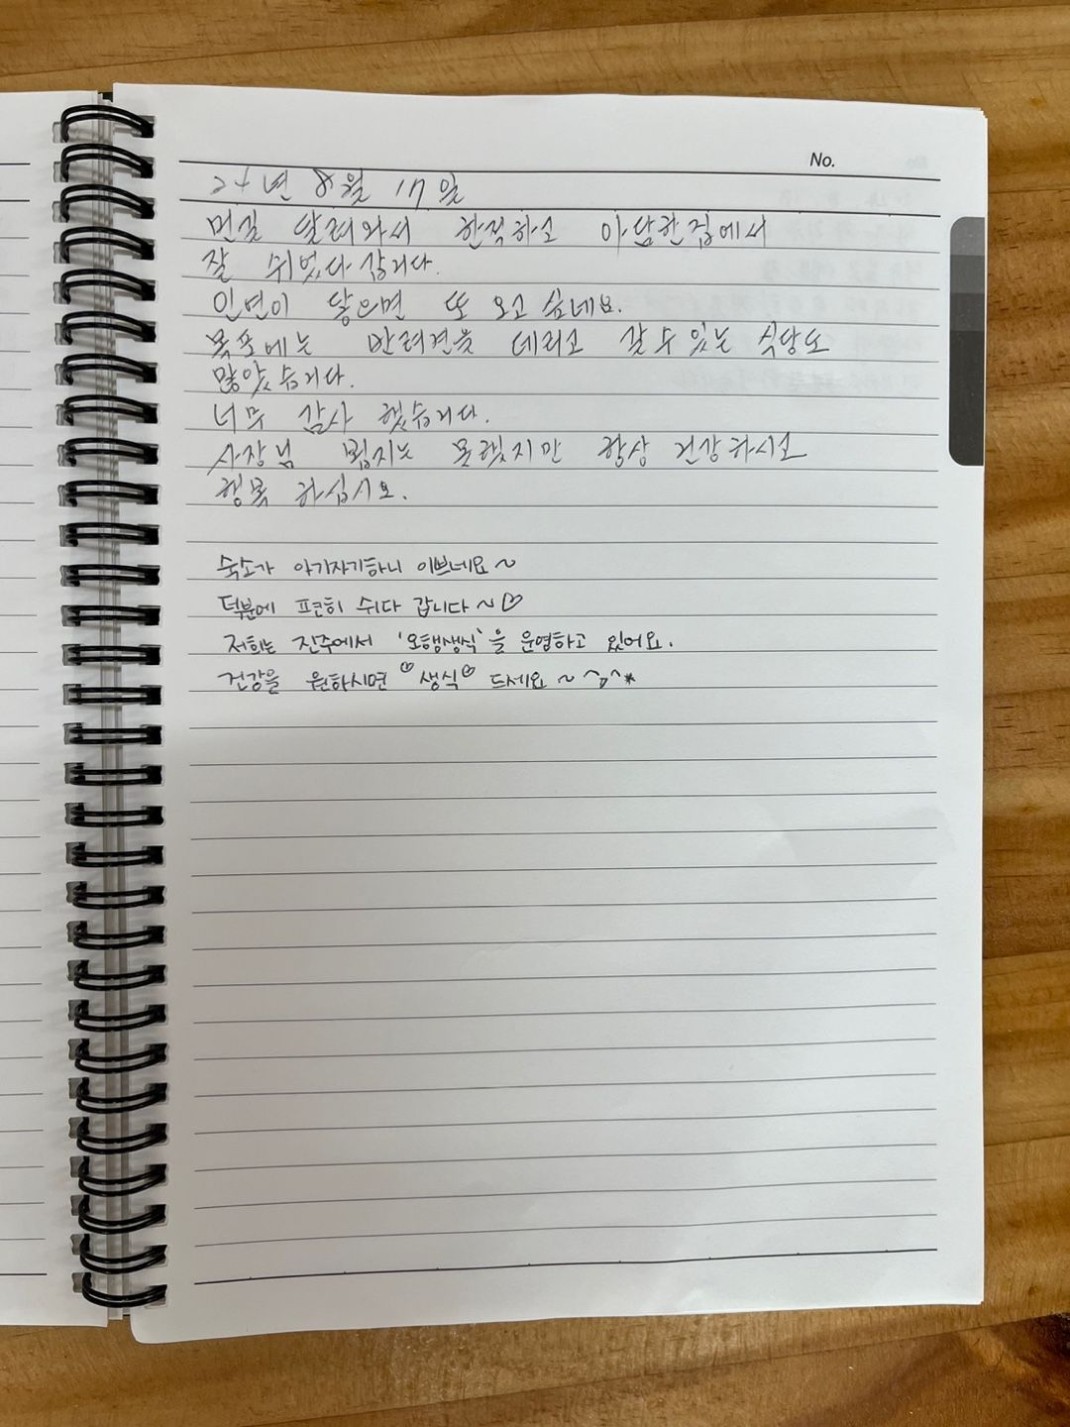 No.
24년 8월 17일
먼길 달려와서 한적하고 아담한집에서
잘 쉬었다 갑니다.
인연이 닿으면 또 오고 싶네요.
목포에는 반려견을 데리고 갈 수 있는 식당도
많았습니다.
너무 감사 했습니다.
사장님 뵙지는 못했지만 항상 건강하시고
행복 하십시요.
숙소가 아기자기하니 이쁘네요~
덕분에 편히 쉬다 갑니다~♡
저희는 진주에서 '오행생식'을 운영하고 있어요.
건강을 원하시면 ♡생식♡ 드세요~ ^△^*